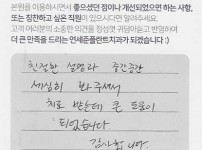 본원을 이용하시면서 좋으셨던 점이나 개선되었으면 하는 사항,
또는 칭찬하고 싶은 직원이 있으시다면 알려주세요.
고객 여러분의 소중한 의견을 정성껏 귀담아듣고 반영하여
더 큰 만족을 드리는 연세준플란트치과가 되겠습니다 :)
친절한 설명과 중간중간
세심히 봐주셔서
치료 받는데 큰 도움이
되었습니다
감사합니다